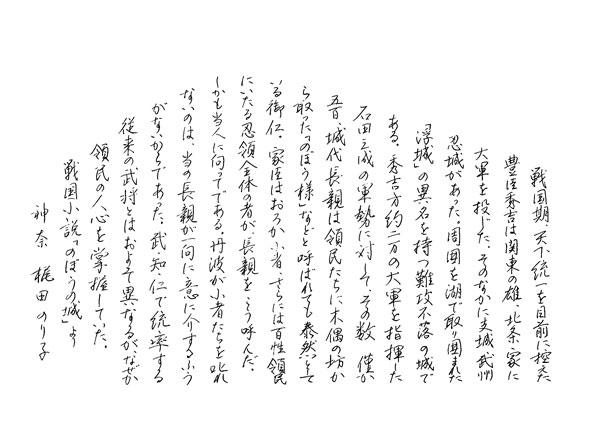 戦国期、天下統一を目前に控えた
豊臣秀吉は関東の雄、北条家に
大軍を投じた。そのなかに支城、武州
忍城があった。周囲を湖で取り囲まれた
「浮城」の異名を持つ難攻不落の城で
ある。秀吉方約二万の大軍を指揮した
石田三成の軍勢に対して、その数、僅か
五百。城代・長親は領民たちに木偶の坊か
ら取った「のぼう様」などと呼ばれても泰然として
いる御仁。家臣はおろか小者、さらには百姓領民
にいたる忍領全体の者が、長親をこう呼んだ。
しかも当人に向ってである。丹波が小者たちを叱れ
ないのは、当の長親が一向に意に介するふう
がないからであった。武・知・仁で統率する
従来の武将とはおよそ異なるが、なぜか
領民の人心を掌握していた。
戦国小説「のぼうの城」より
神奈 梶田のり子